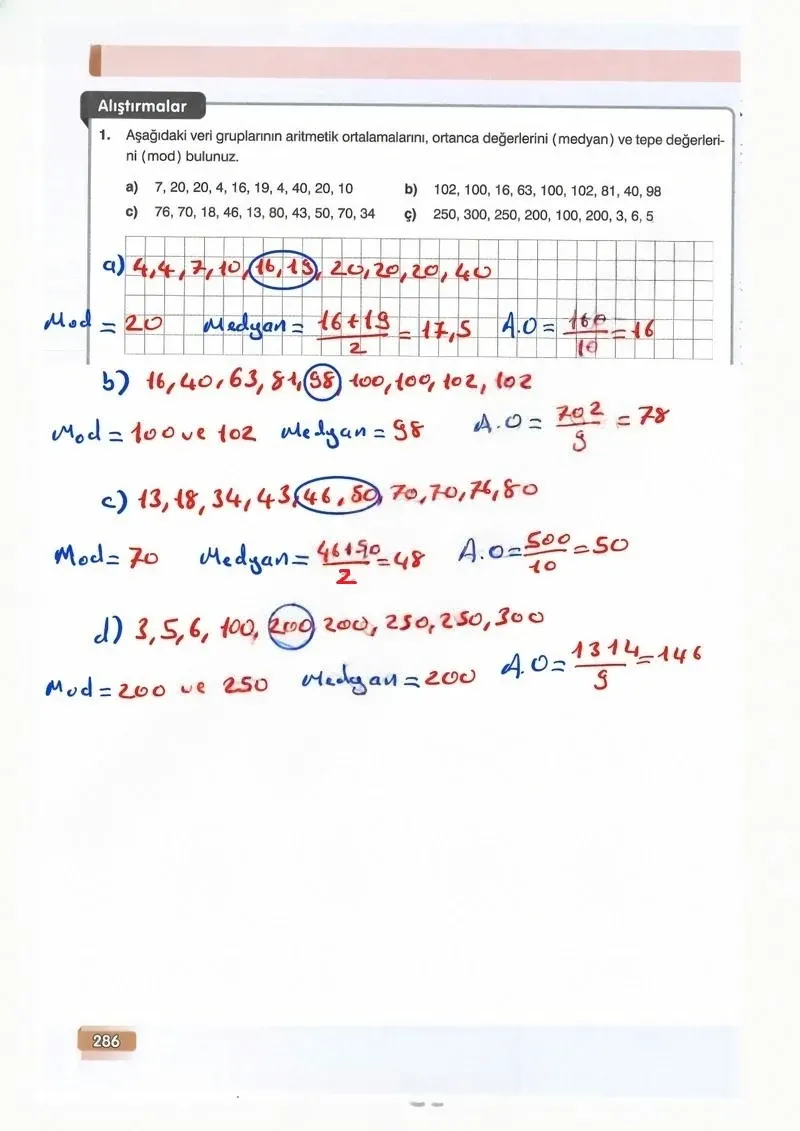 Alıştırmalar
1. Aşağıdaki veri gruplarının aritmetik ortalamalarını, ortanca değerlerini (medyan) ve tepe değerleri-
ni (mod) bulunuz.
a) 7, 20, 20, 4, 16, 19, 4, 40, 20, 10
b) 102, 100, 16, 63, 100, 102, 81, 40, 98
c) 76, 70, 18, 46, 13, 80, 43, 50, 70, 34
ç) 250, 300, 250, 200, 100, 200, 3, 6, 5
a) 4,4,7,10,16,19,20,20,20,40
Mod = 20 Medyan = 16+19/2 = 17,5 A.O = 160/10 = 16
b) 16,40,63,81,98,100,100,102,102
Mod = 100 ve 102 Medyan = 98 A.O = 702/9 = 78
c) 13,18,34,43,46,50,70,70,76,80
Mod = 70 Medyan = 46+50/2 = 48 A.O = 500/10 = 50
d) 3,5,6,100,200,200,250,250,300
Mod = 200 ve 250 Medyan = 200 A.O = 1314/9 = 146
286